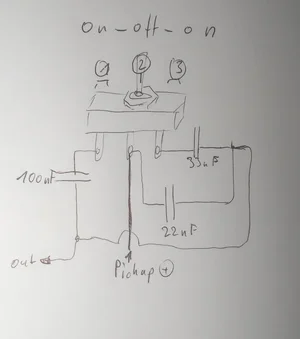 on-off-on
1 2 3
33nF
100nF
22nF
out
Pickup +